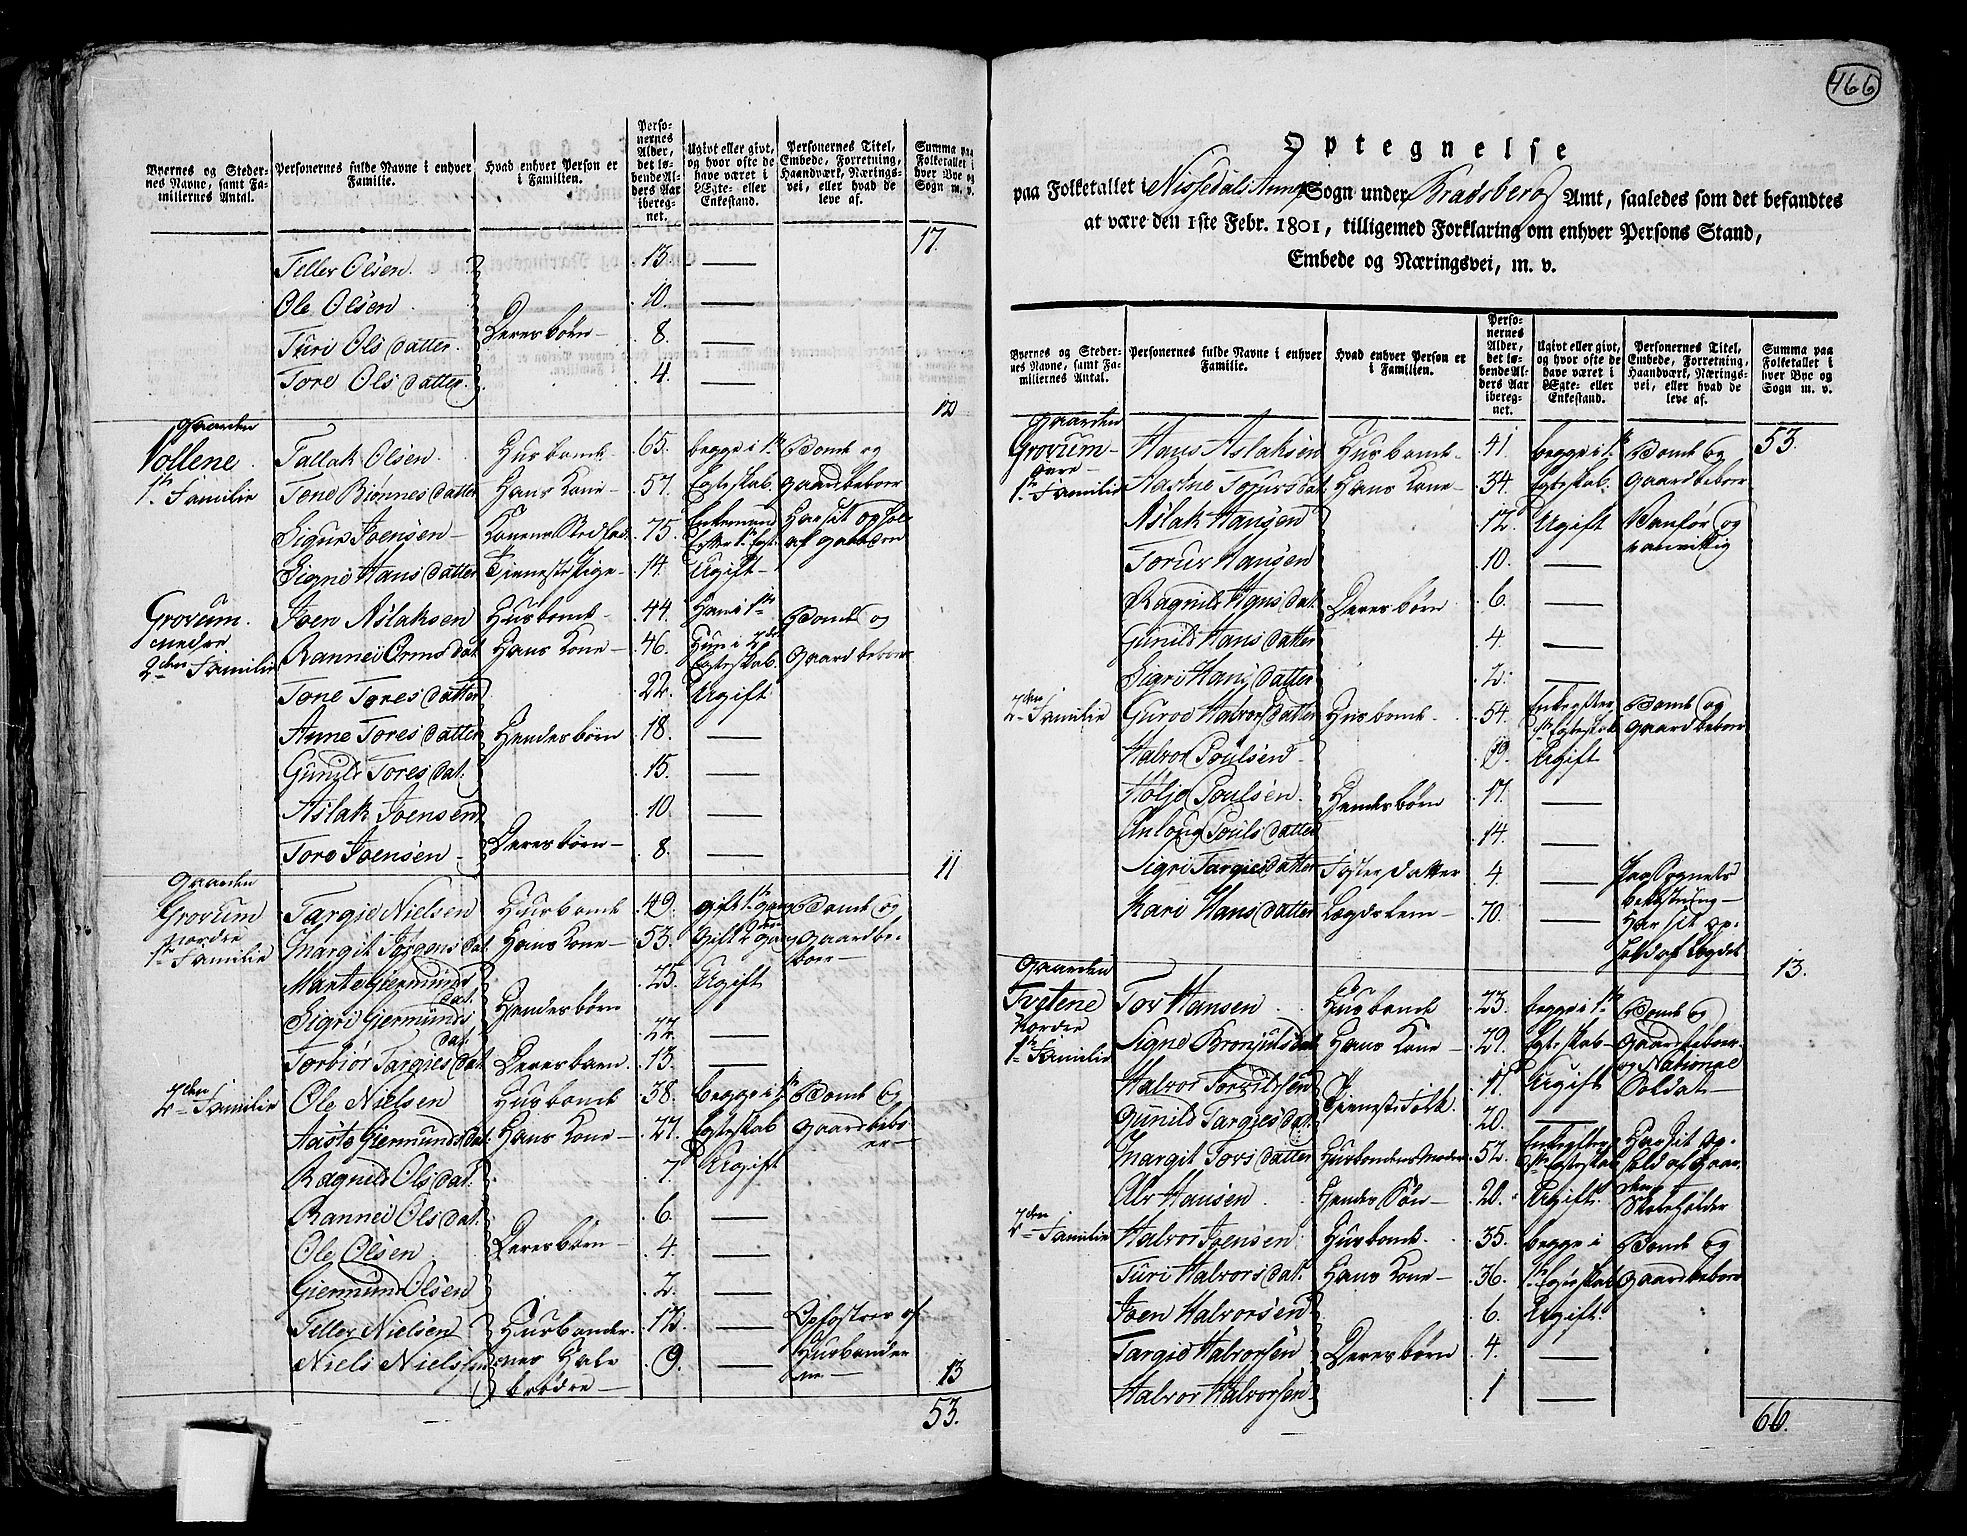 Byernes og Steder- nes Navne, samt Fa- millernes Antal. | Personernes fulde Navne i enhver Familie. | Hvad enhver Person er i Familien. | Perso- nernes Alder, det lø- bende Al- ders Aar iberegnet. | Ugivt eller givt, og hvor ofte de have været i Ægte- eller Enkestand. | Personernes Titel, Embede, Forretning, Haandværk, Nærings- vei, eller hvad de leve af. | Summa paa Folketallet i hver Bye og Sogn m. v.
17.
Teller Olsen. 13. —
Ole Olsen 10. —
Turi Ols datter. Deres børn — 8. —
Tore Ols datter. 4. —
12
Gaarden
Vollene. Tallak Olsen. Husbonde 65. begge i 1te Bonde og
1te Familie Tone Biønnes datter Hans Kone — 57. Egteskab. Gaardbeboer
Sigur Joensen — Konens Stedfad. 75. Enkemand Har sit ophold
efter 1te Egt. af gaarden
Signe Hans datter Tieneste Pige — 14. Ugift —
Grovum. Joen Aslaksen Husbonde — 44. Han i 1te Bonde og
nedre Rannei Orms dat. Hans Kone — 46. Hun i 2det Gaardbeboer
2den Familie Egteskab.
Tone Tores datter 22. Ugift
Anne Tores datter Hendes børn 18. —
Gunild Tores dat. 15. —
Aslak Joensen 10. —
Tore Joensen — Deres børn — 8. —
11
Gaarden
Grovum Targie Nielsen Husbonde 49. gift 1te gang Bonde og
nordre Margit Jørgens dat. Hans Kone — 53. Gift 2den gang Gaardbe-
1te Familie boer —
Marte Giermunds dat. 25. Ugift
Sigri Giermunds dat. Hendes børn 22. —
Torbiør Targies dat. Deres barn — 13. —
2den Familie Ole Nielsen Husbonde 38. begge i 1te Bonde og
Aaste Giermunds dat. Hans Kone — 27. Egteskab Gaardbebo-
er —
Ragnild Ols dat. 7 Ugift
Rannei Ols dat. 6. —
Ole Olsen Deres børn — 4. —
Giermund Olsen 2. —
Teller Nielsen Husbonde- 13. — Opfostres af
Niels Nielssen nes Halv 9. — Husbonde
brødre — ne. —
13
53.
466
Optegnelse
paa Folketallet i Nissedals Annex Sogn under Bradsberg Amt, saaledes som det befandtes
at være den 1ste Febr. 1801, tilligemed Forklaring om enhver Persons Stand,
Embede og Næringsvei, m. v.
Byernes og Steder- nes Navne, samt Fa- millernes Antal. | Personernes fulde Navne i enhver Familie. | Hvad enhver Person er i Familien. | Perso- nernes Alder, det lø- bende Al- ders Aar iberegnet. | Ugivt eller givt, og hvor ofte de have været i Ægte- eller Enkestand. | Personernes Titel, Embede, Forretning, Haandværk, Nærings- vei, eller hvad de leve af. | Summa paa Folketallet i hver Bye og Sogn m. v.
Gaarden
Grovum Hans Aslaksen Husbonde — 41. begge i 1te Bonde og 53.
øvre —
1te Familie Aasne Torurs dat. Hans Kone — 34. Egteskab. Gaardbeboer
Aslak Hansen 12. Ugift Vanfør og
vanvittig
Torur Hansen 10. —
Ragnild Hans dat. Deres børn 6. —
Gunild Hans datter 4. —
Sigri Hans datter 2. —
2den Familie Guroe Halvors datter Husbonde. 54. Enke efter Bonde og
1te Egteskab Gaardbeboer
Halvor Poulsen 19. Ugift
Høljo Poulsen. Hendes børn 17. —
Anloug Pouls datter 14. —
Sigri Targies datter Foster datter 4 — Paa Sognets
bekostning —
Kari Hans datter Lægdslem — 70. — Har sit op-
hold af Legdet
13.
Gaarden
Tvetene Tov Hansen Husbonde 23. begge i 1te Bonde og
Nordre Signe Bronjuls dat. Hans Kone — 29. Egteskab — Gaardbeboer
1te Familie og National
Halvor Torvildsen 17. Ugift Soldat —
Gunild Targies dat. Tieneste Folk 20. —
Margit Tovs datter Husbondens Moder 52. Enke efter Har sit op-
1te Egteskab hold af Gaar-
den —
Alv Hansen Hendes Søn — 20. Ugift. Skoleholder
2den Familie Halvor Joensen Husbonde. 35. begge i Bonde og
Turi Halvors dat. Hans Kone — 36. 1te Egteskab Gaardbeboer
Joen Halvorsen 6. Ugift.
Targie Halvorsen Deres børn 4. —
Halvor Halvorsen 1 —
66.